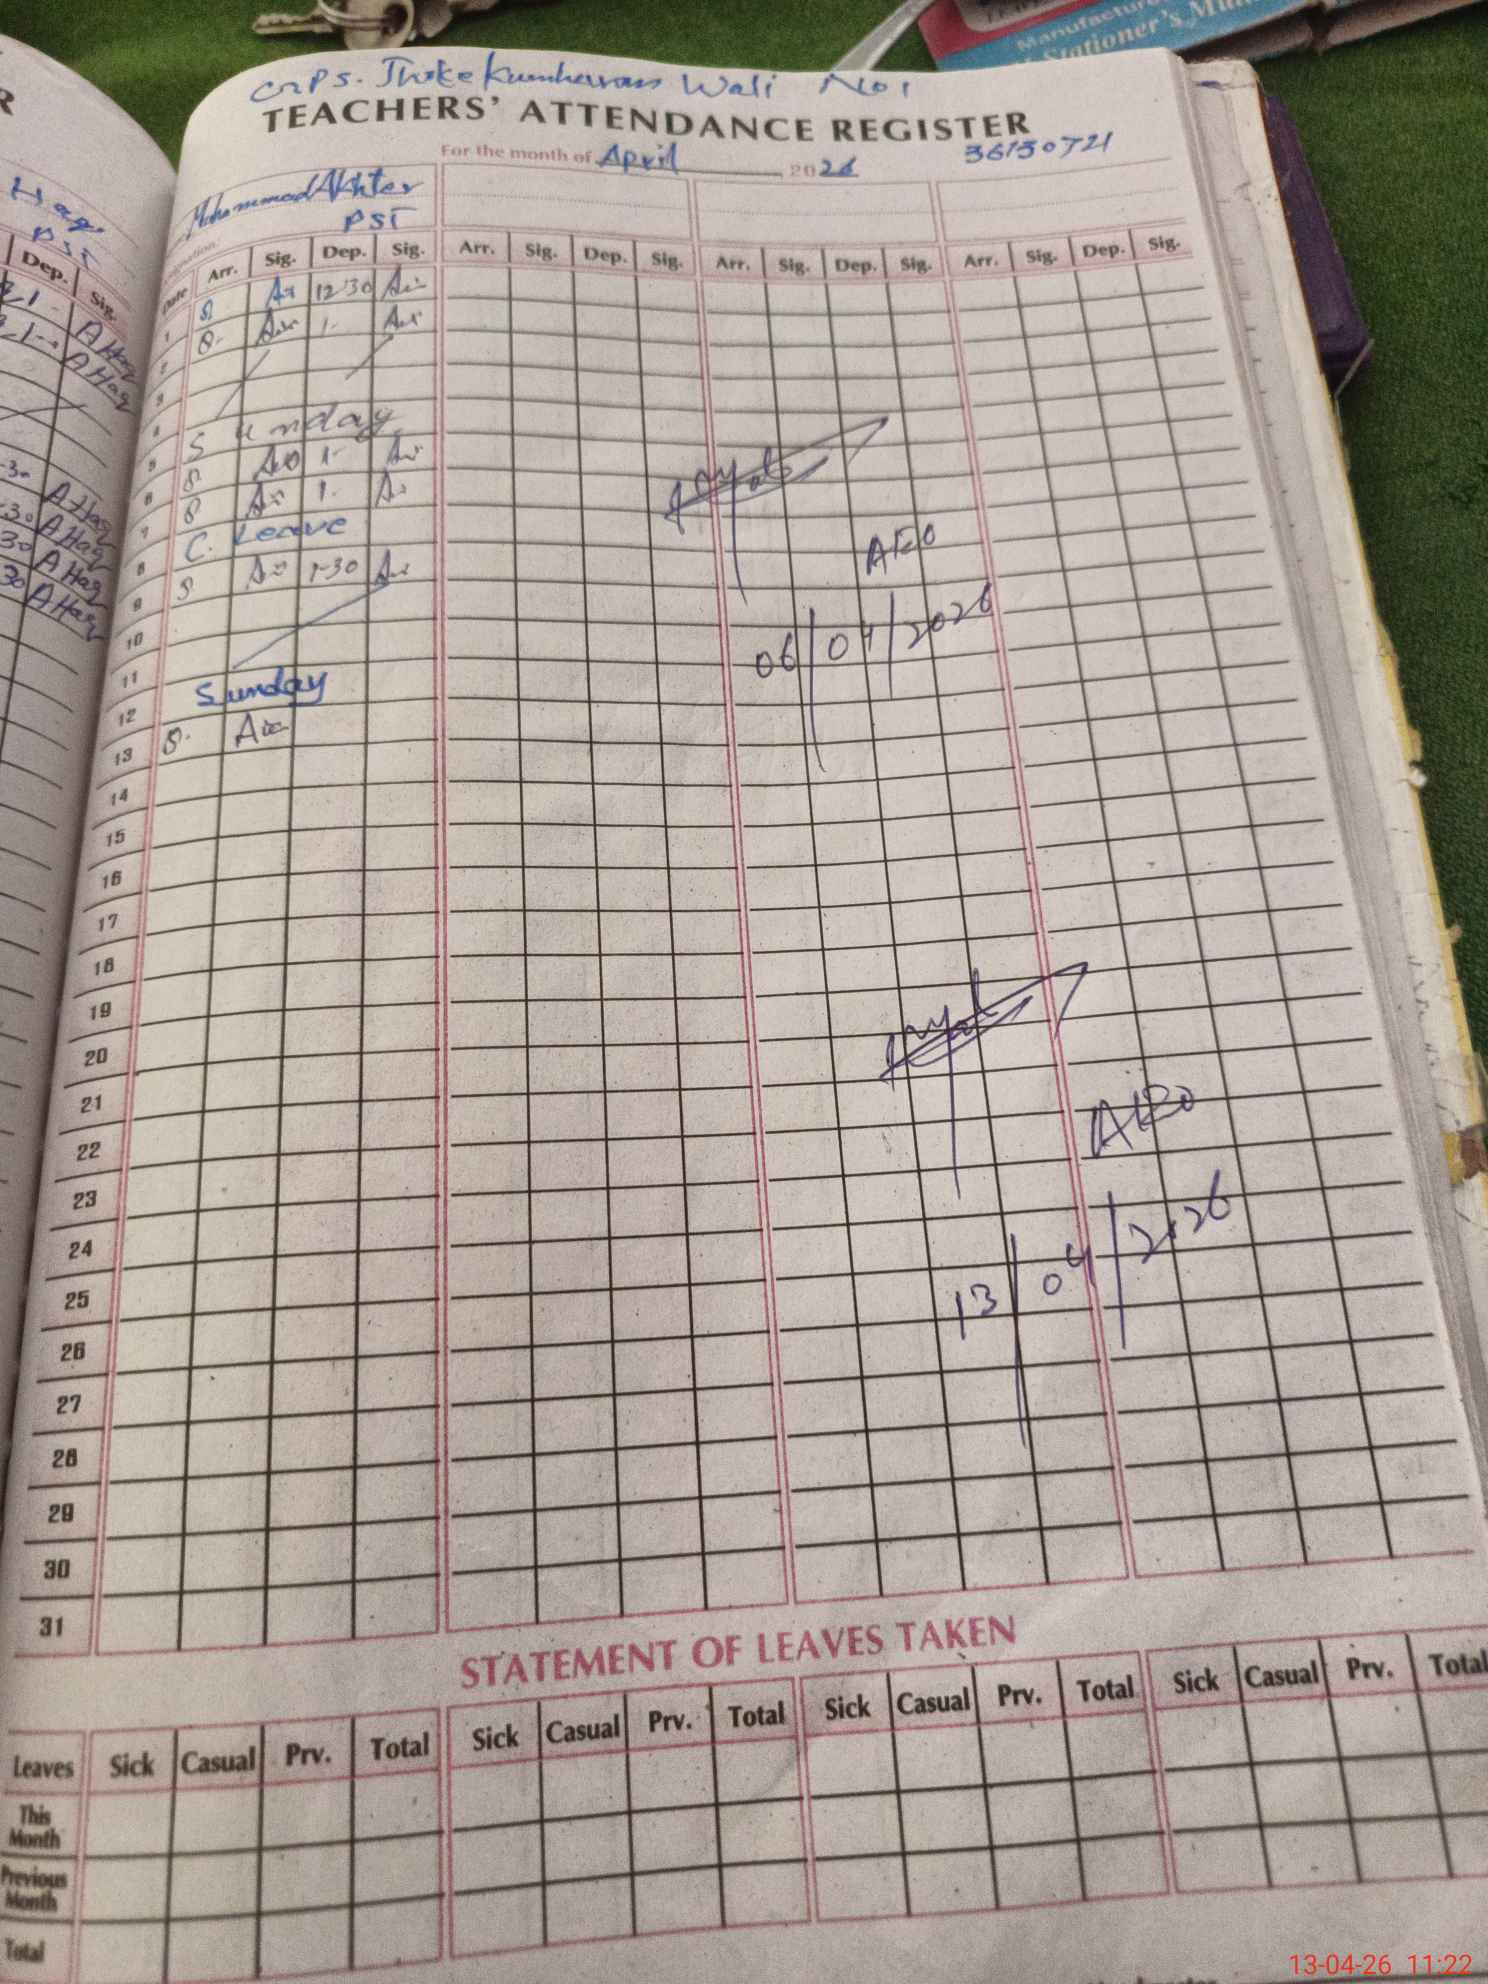 Manufacture
Stationer's
GPS. Jhoke Kumharan Wali No 1
TEACHERS' ATTENDANCE REGISTER
For the month of April 2026
36130721
Mohammad Akhter
PST
Date Arr. Sig. Dep. Sig. Arr. Sig. Dep. Sig. Arr. Sig. Dep. Sig. Arr. Sig. Dep. Sig.
1 8 12-30
2 8- 1-
3
4
5 Sunday
6 8 1-
7 8 1-
8 C. Leave
9 8 1-30
10
11
12 Sunday
13 8-
14
15
16
17
18
19
20
21
22
23
24
25
26
27
28
29
30
31
AEO
06/04/2026
AEO
13/04/2026
Haq
PST
Dep. Sig.
1- A Haq
1- A Haq
A Haq
30 A Haq
30 A Haq
30 A Haq
STATEMENT OF LEAVES TAKEN
Leaves Sick Casual Prv. Total Sick Casual Prv. Total Sick Casual Prv. Total Sick Casual Prv. Total
This Month
Previous Month
Total
13-04-26 11:22